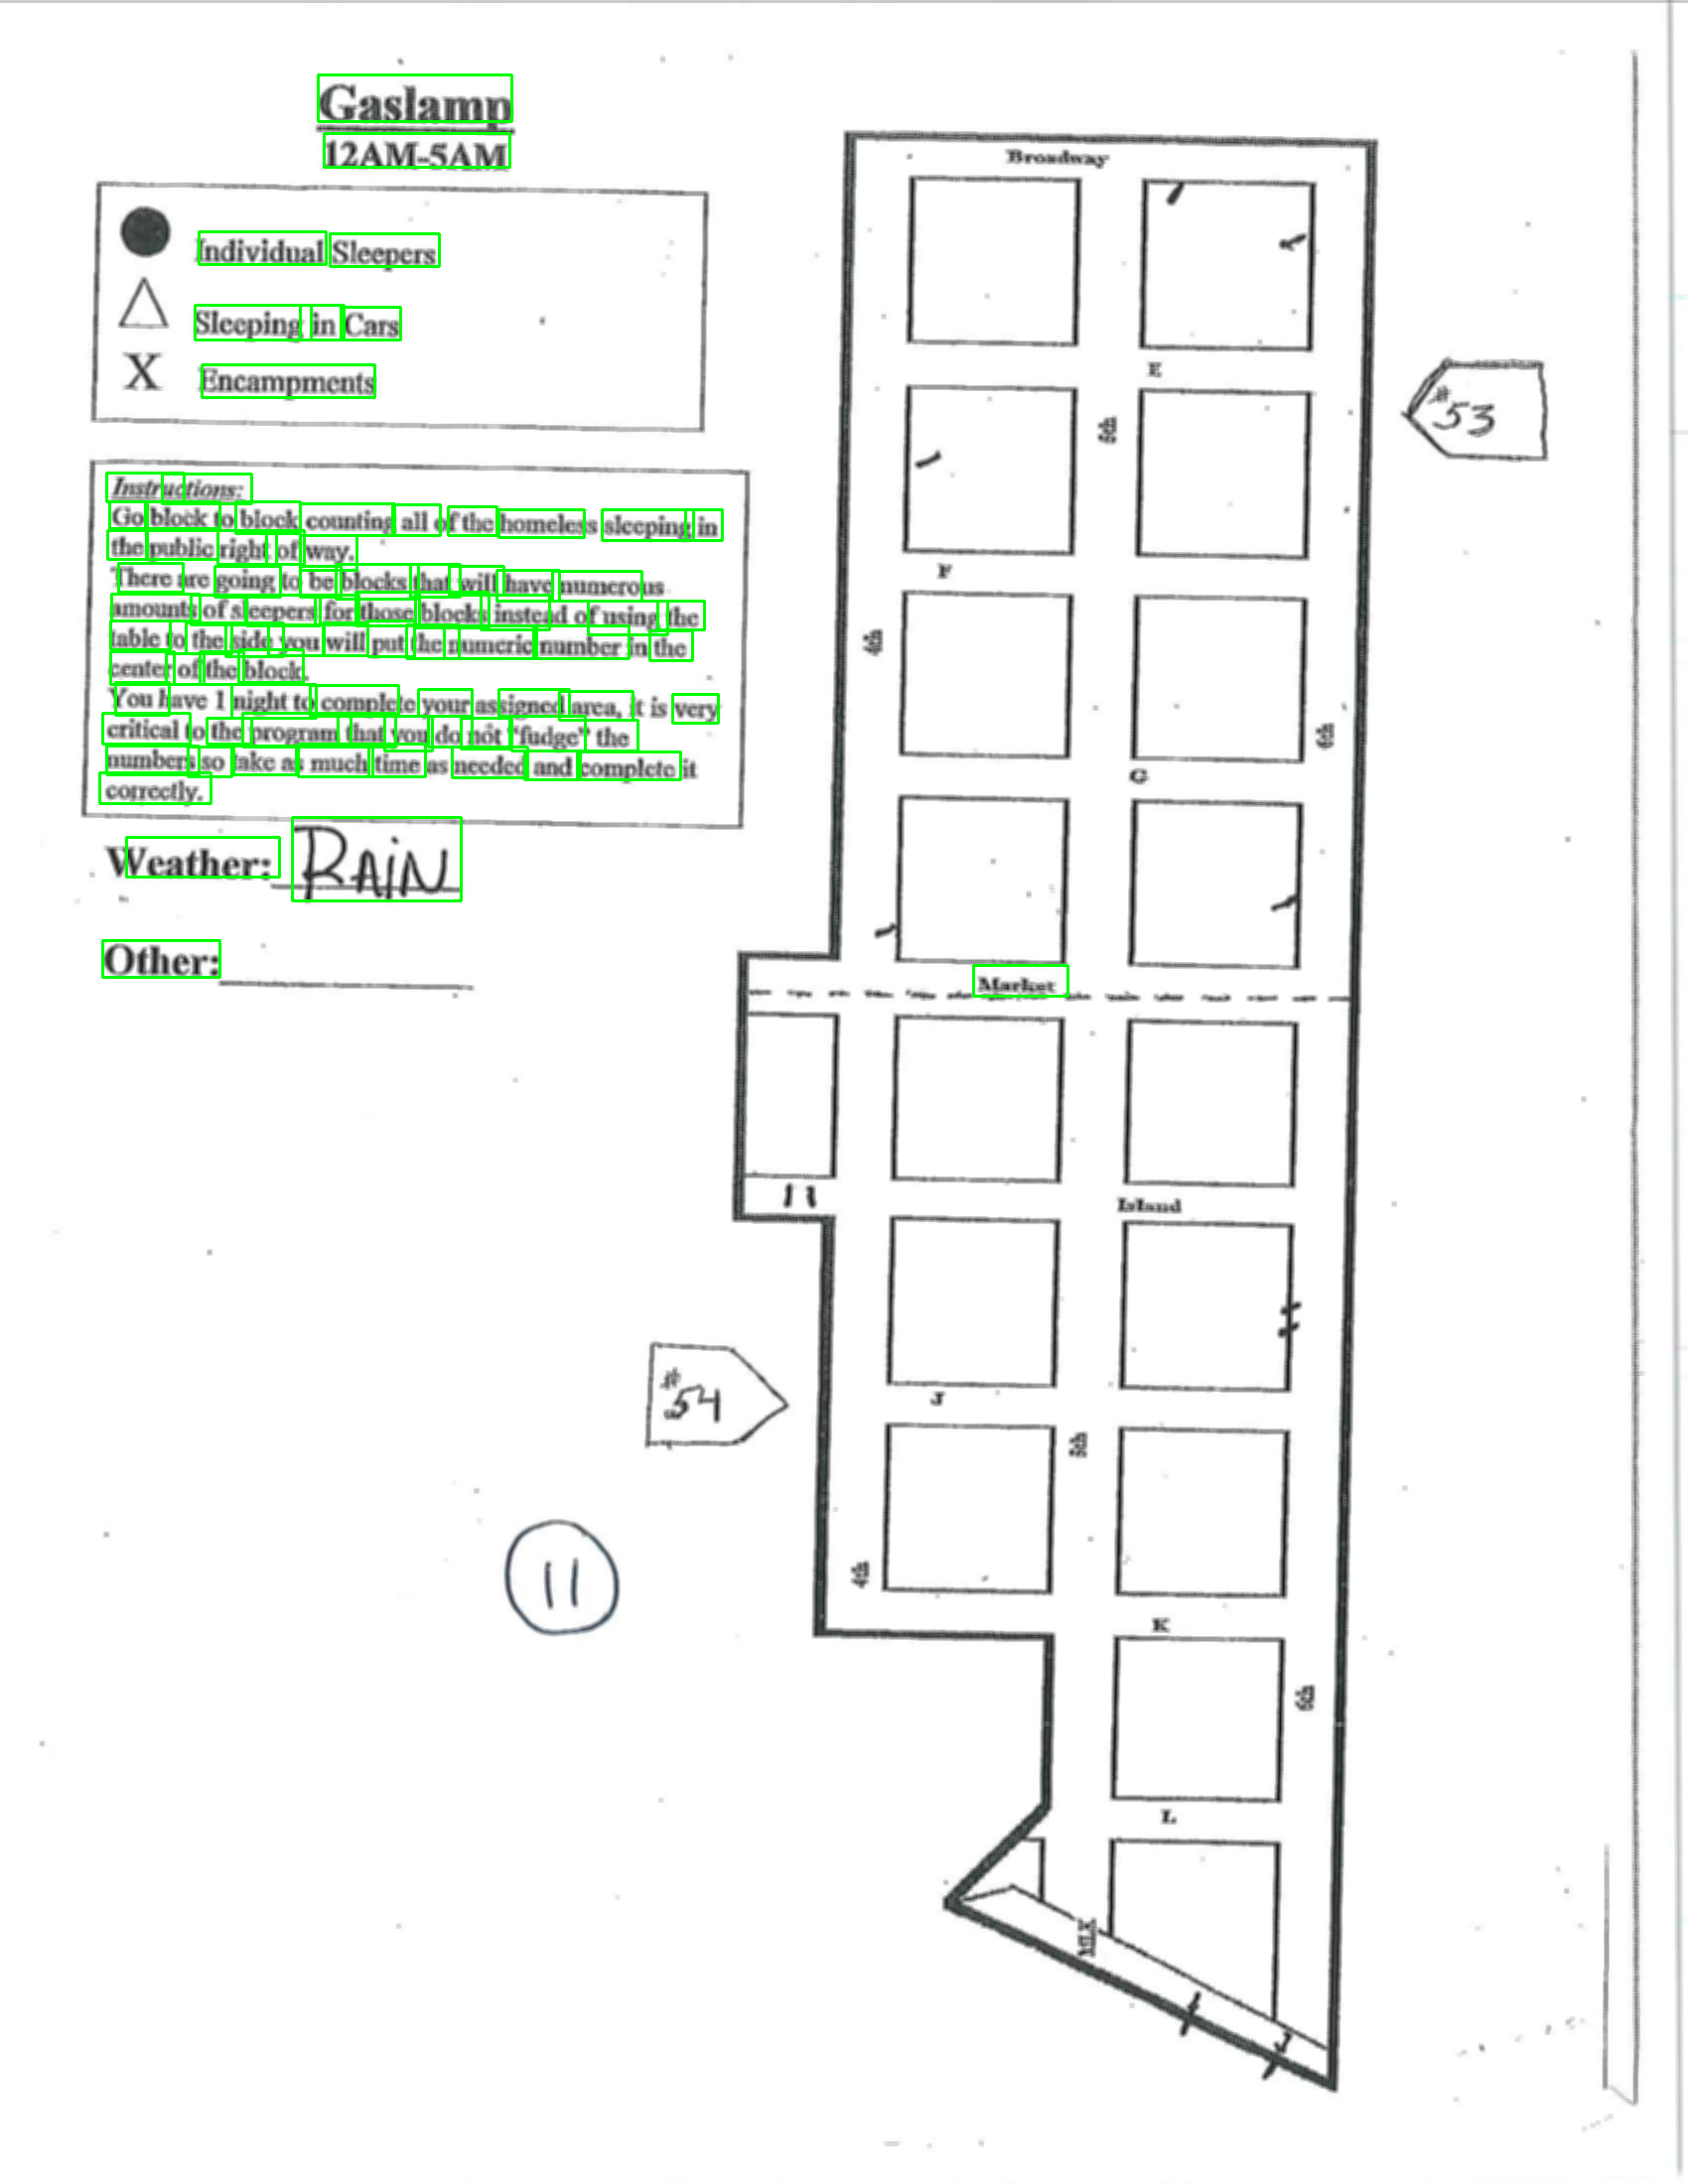 Gaslamp
12AM-5AM
Individual Sleepers
Sleeping in Cars
X Encampments
Instructions:
Go block to block counting all of the homeless sleeping in
the public right of way.
There are going to be blocks that will have numerous
amounts of sleepers for those blocks instead of using the
table to the side you will put the numeric number in the
center of the block.
You have 1 night to complete your assigned area, it is very
critical to the program that you do not "fudge" the
numbers so take as much time as needed and complete it
correctly.
Weather: RAIN
Other:
Broadway
E
#53
5th
F
4th
6th
G
Market
Island
J
#54
5th
11
4th
K
6th
L
MLK